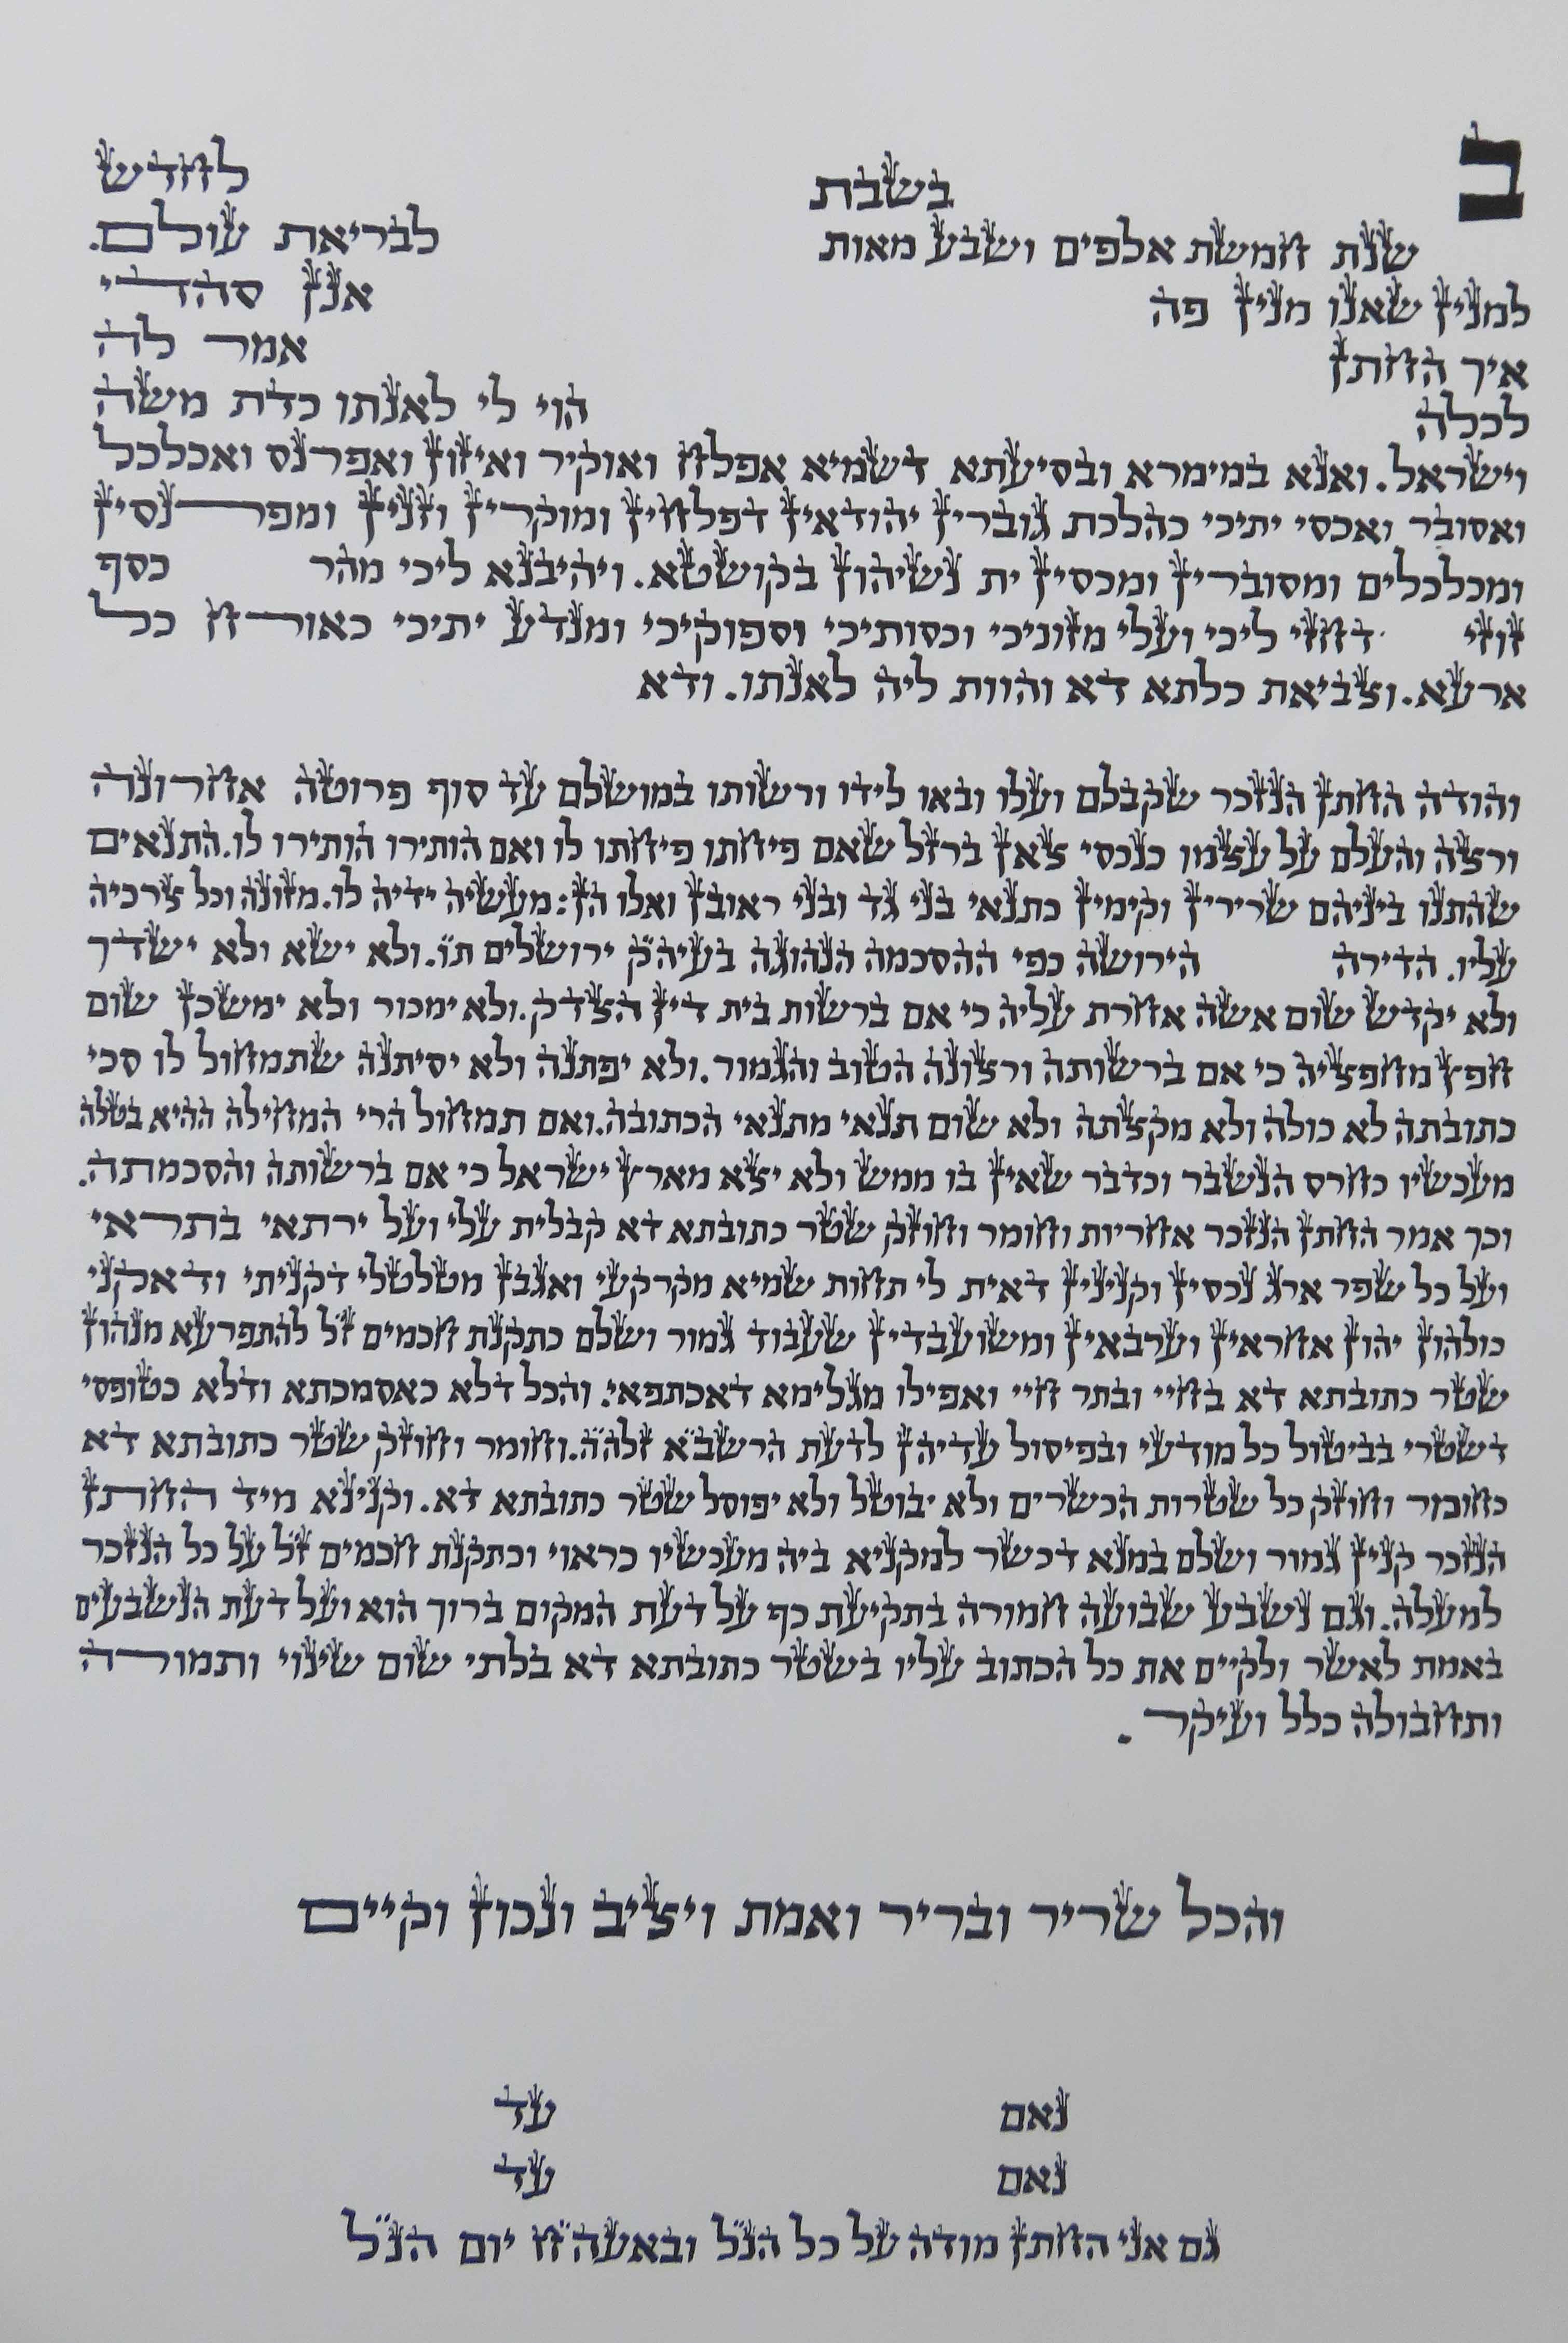 ב בשבת לחדש
שנת חמשת אלפים ושבע מאות לבריאת עולם.
למנין שאנו מנין פה אנן סהדי
איך החתן אמר לה
לכלה הוי לי לאנתו כדת משה
וישראל. ואנא במימרא ובסיעתא דשמיא אפלח ואוקיר ואיזון ואפרנס ואכלכל
ואסובר ואכסי יתיכי כהלכת גוברין יהודאין דפלחין ומוקרין וזנין ומפרנסין
ומכלכלים ומסוברין ומכסין ית נשיהון בקושטא. ויהיבנא ליכי מהר כסף
זוזי דחזי ליכי ועלי מזוניכי וכסותיכי וספוקיכי ומנדע יתיכי כאורח כל
ארעא. וצביאת כלתא דא והוות ליה לאנתו. ודא
והודה החתן הנזכר שקבלם ועלו ובאו לידו ורשותו במושלם עד סוף פרוטה אחרונה
ורצה והעלם על עצמו כנכסי צאן ברזל שאם פיחתו פיחתו לו ואם הותירו הותירו לו. התנאים
שהתנו ביניהם שרירין וקימין כתנאי בני גד ובני ראובן ואלו הן: מעשיה ידיה לו. מזונה וכל צרכיה
עליו. הדירה הירושה כפי ההסכמה הנהוגה בעיה״ק ירושלים ת״ו. ולא ישא ולא ישדך
ולא יקדש שום אשה אחרת עליה כי אם ברשות בית דין הצדק. ולא ימכור ולא ימשכן שום
חפץ מחפציה כי אם ברשותה ורצונה הטוב והגמור. ולא יפתנה ולא יסיתנה שתמחול לו סכי
כתובתה לא כולה ולא מקצתה ולא שום תנאי מתנאי הכתובה. ואם תמחול הרי המחילה ההיא בטלה
מעכשיו כחרס הנשבר וכדבר שאין בו ממש ולא יצא מארץ ישראל כי אם ברשותה והסכמתה.
וכך אמר החתן הנזכר אחריות וחומר וחוזק שטר כתובתא דא קבלית עלי ועל ירתאי בתראי
ועל כל שפר ארג נכסין וקנינין דאית לי תחות שמיא מקרקעי ואגבן מטלטלי דקניתי ודאקני
כולהון יהון אחראין וערבאין ומשועבדין שעבוד גמור ושלם כתקנת חכמים ז״ל להתפרעא מנהון
שטר כתובתא דא בחיי ובתר חיי ואפילו מגלימא דאכתפאי. והכל דלא כאסמכתא ודלא כטופסי
דשטרי בביטול כל מודעי ובפיסול עדיהן לדעת הרשב״א זלה״ה. וחומר וחוזק שטר כתובתא דא
כחומר וחוזק כל שטרות הכשרים ולא יבוטל ולא יפוסל שטר כתובתא דא. וקנינא מיד החתן
הנזכר קנין גמור ושלם במנא דכשר למקניא ביה מעכשיו כראוי וכתקנת חכמים ז״ל על כל הנזכר
למעלה. וגם נשבע שבועה חמורה בתקיעת כף על דעת המקום ברוך הוא ועל דעת הנשבעים
באמת לאשר ולקיים את כל הכתוב עליו בשטר כתובתא דא בלתי שום שינוי ותמורה
ותחבולה כלל ועיקר.
והכל שריר ובריר ואמת ויציב ונכון וקיים
נאם עד
נאם עד
גם אני החתן מודה על כל הנ״ל ובאעה״ח יום הנ״ל